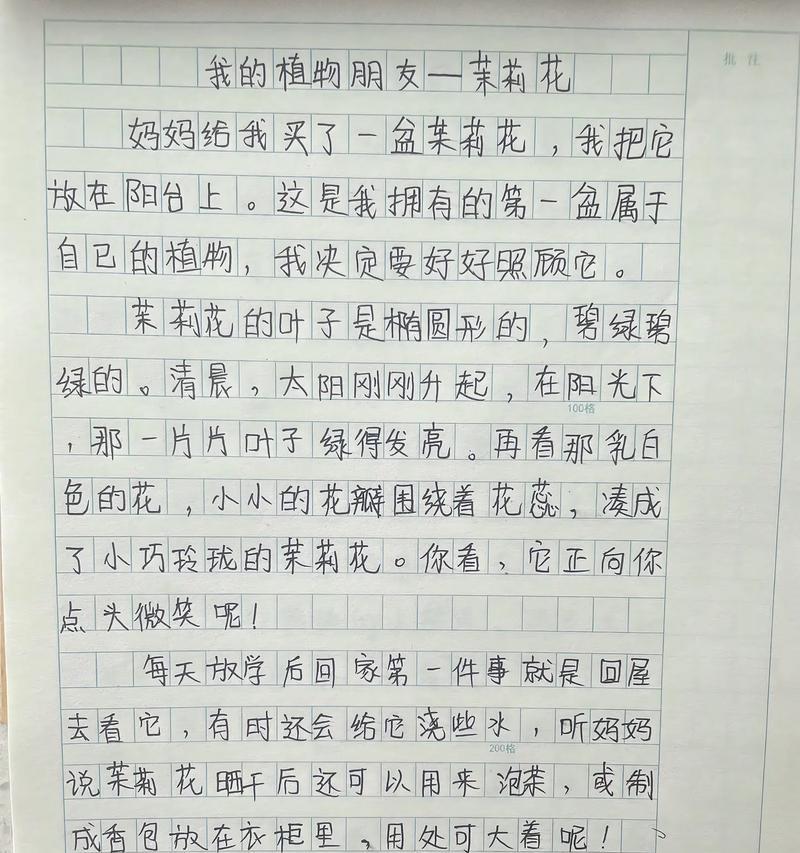 批注
我的植物朋友—茉莉花
妈妈给我买了一盆茉莉花，我把它
放在阳台上。这是我拥有的第一盆属于
自己的植物，我决定要好好照顾它。
茉莉花的叶子是椭圆形的，碧绿碧
绿的。清晨，太阳刚刚升起，在阳光下
100格
，那一片片叶子绿得发亮。再看那乳白
色的花，小小的花瓣围绕着花蕊，凑成
了小巧玲珑的茉莉花。你看，它正向你
点头微笑呢！
每天放学后回家第一件事就是回屋
去看它，有时还会给它浇些水，听妈妈
200格
说茉莉花晒干后还可以用来泡茶，或制
成香包放在衣柜里，用处可大着呢！